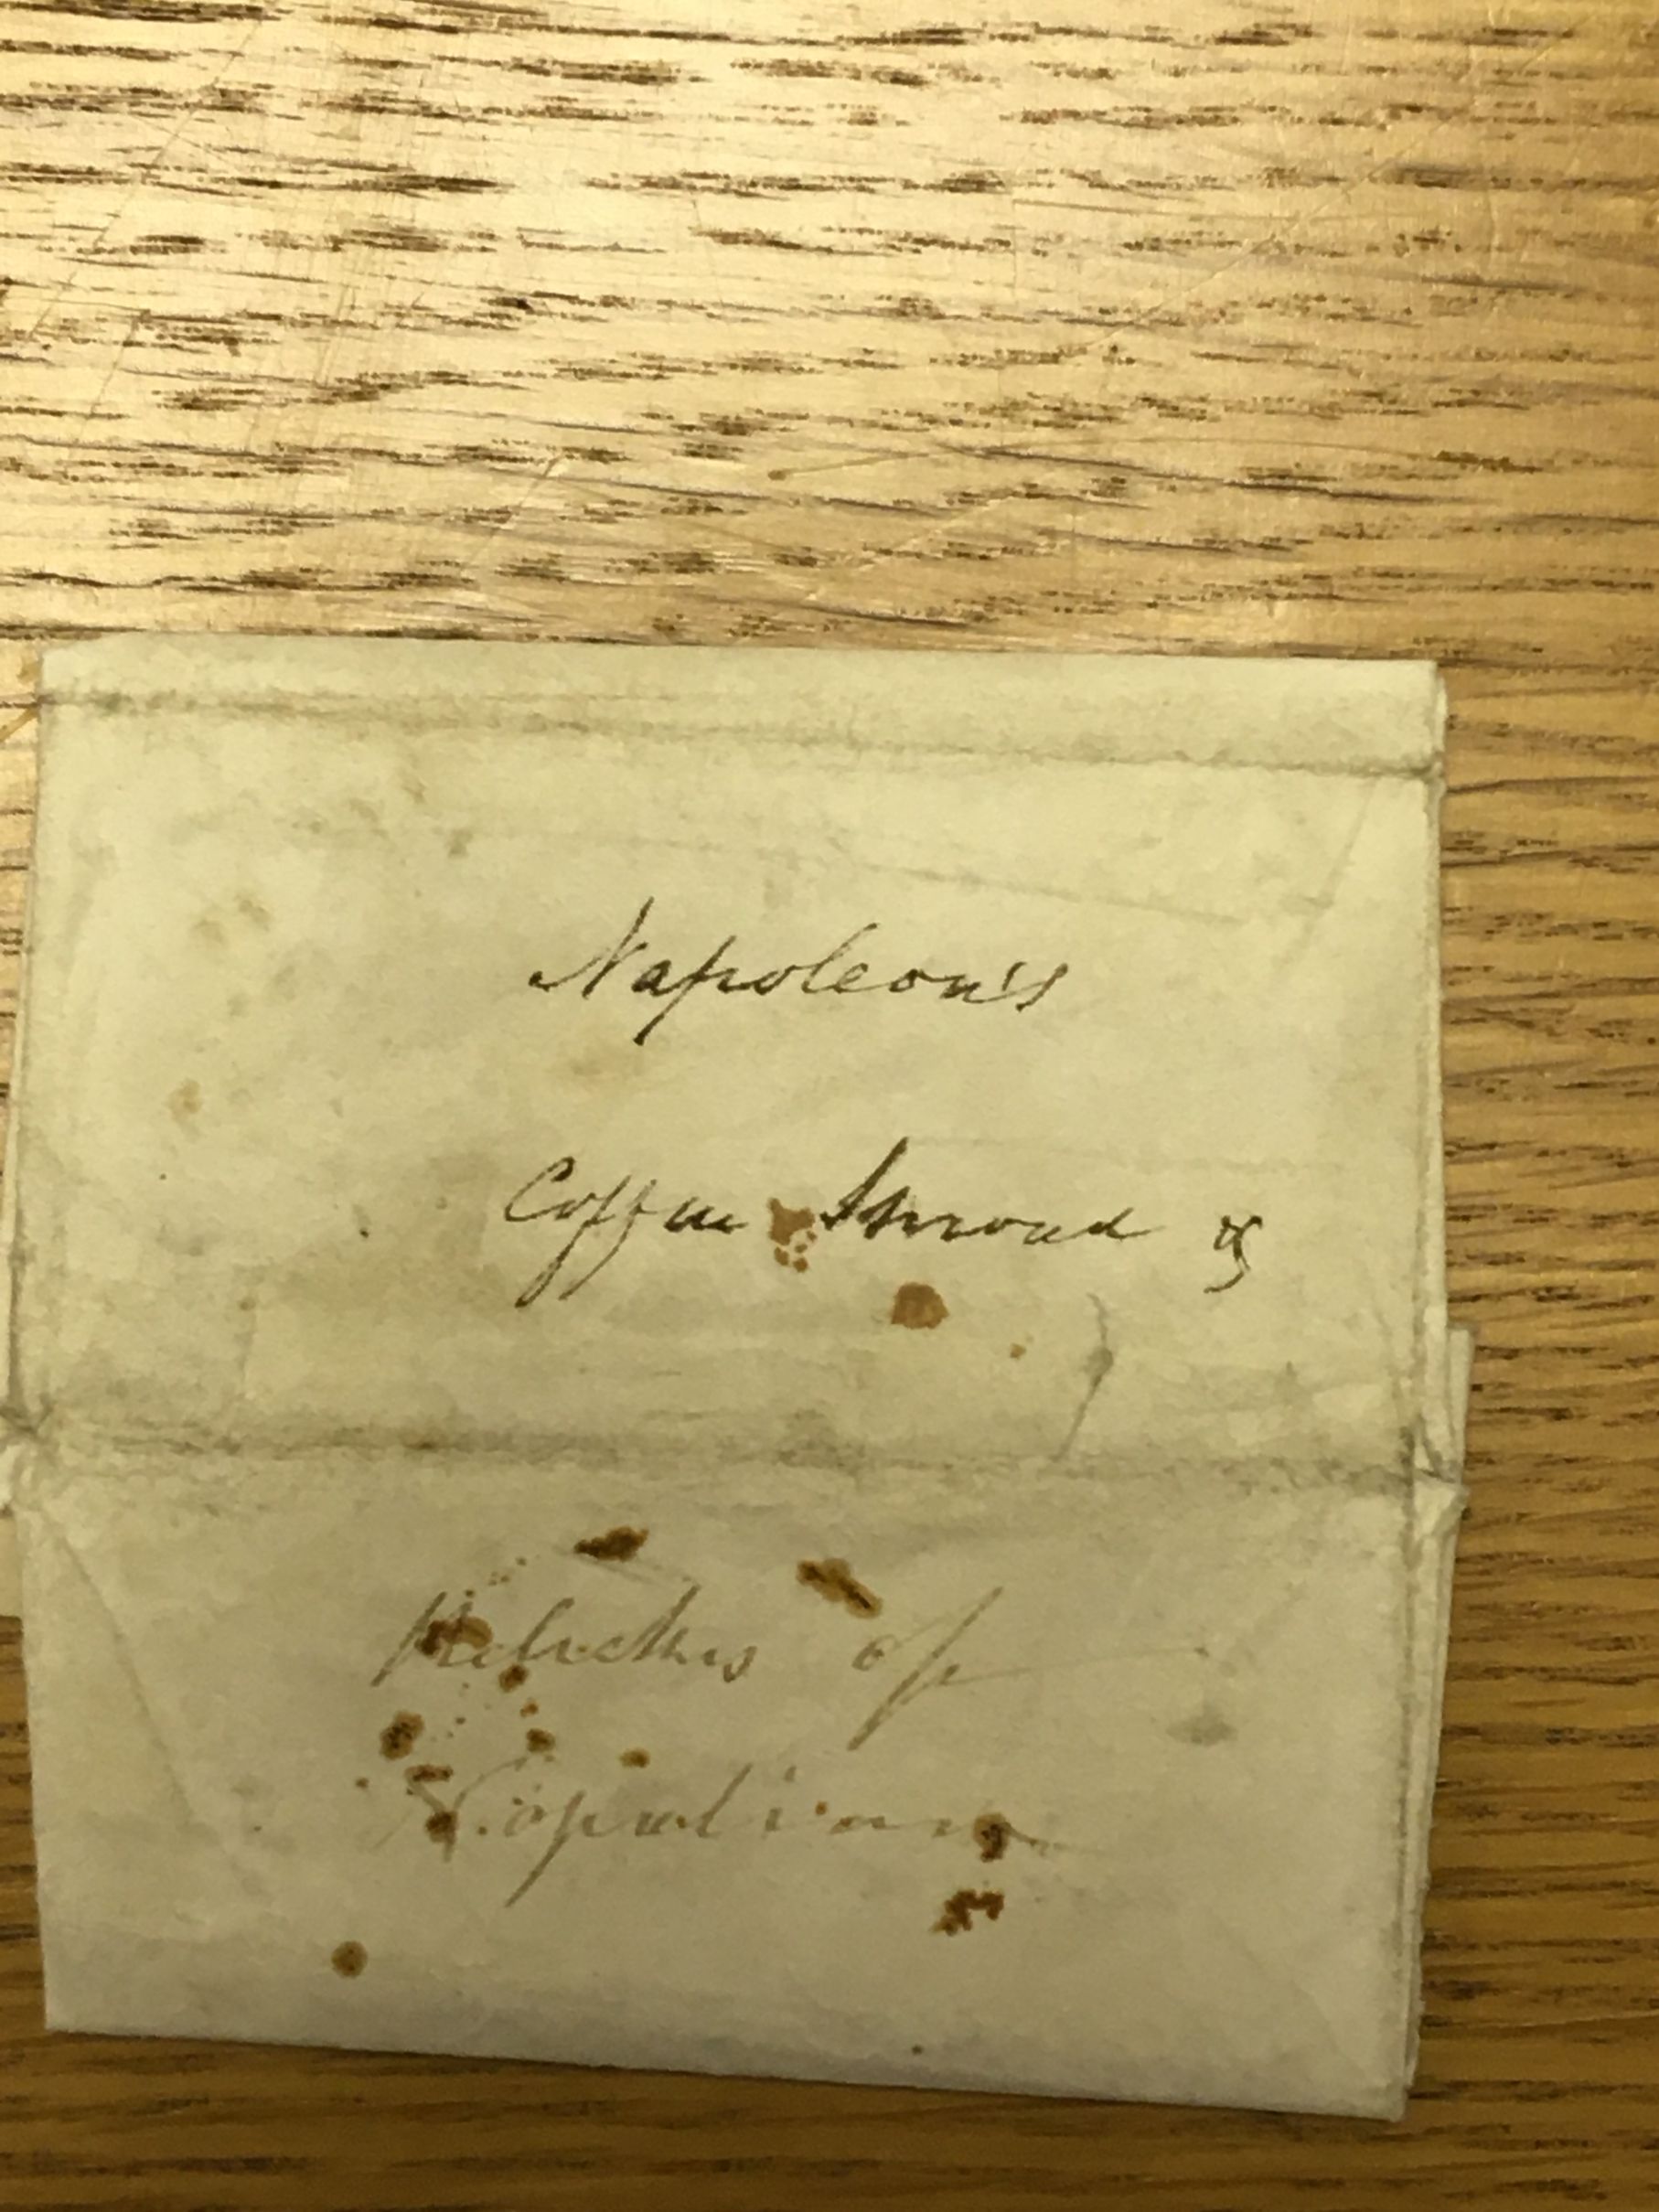 Napoleon's
Coffin Shroud &
Relicks of
Napolian